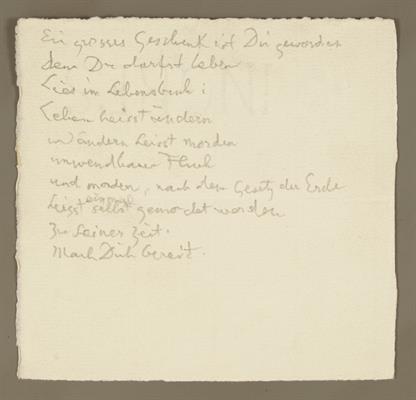 Ein grosses Geschenk ist Dir geworden
denn Du darfst leben
Lies im Lebensbuch:
Leben heisst ändern
und ändern heisst morden
unwendbarer Fluch
und morden, nach dem Gesetz der Erde
heisst einmal selbst gemordet werden
Zu seiner Zeit.
Mach Dich bereit.